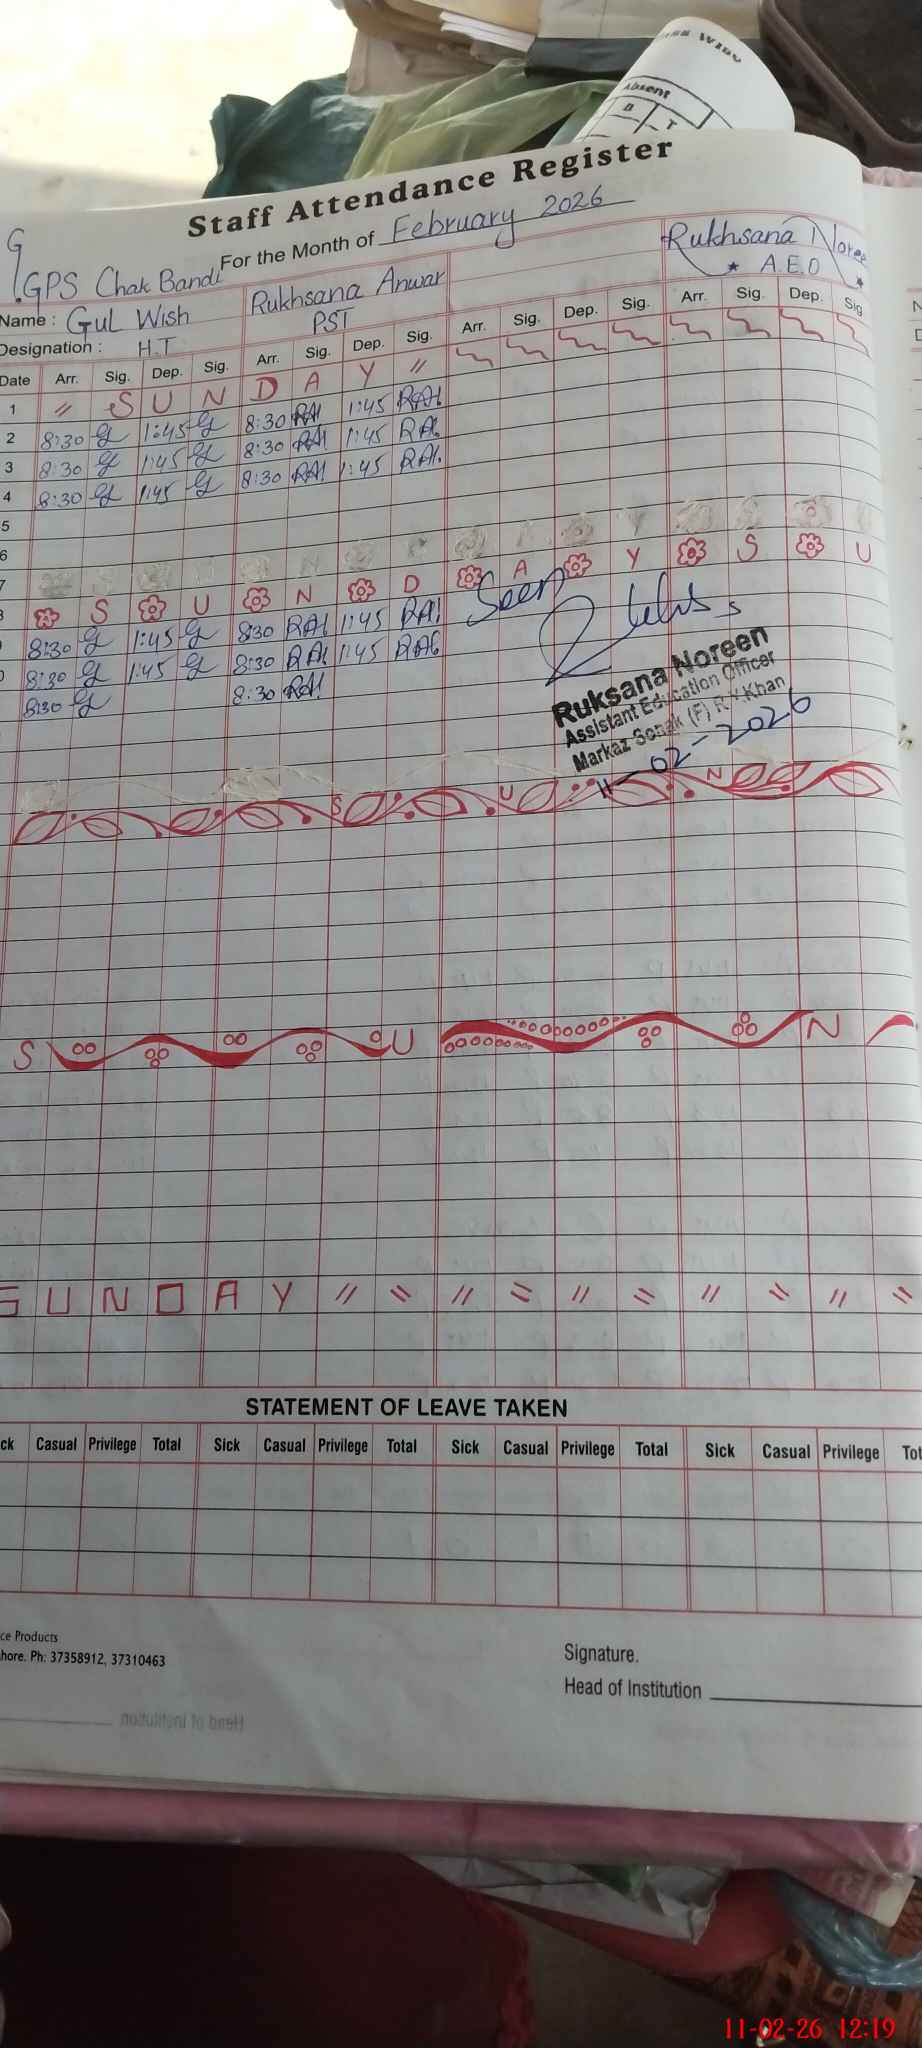 Absent
B T
Staff Attendance Register
For the Month of February 2026
GGPS Chak Bandi
Rukhsana Anwar
PST
Rukhsana Noreen
A.E.O
Name : Gul Wish
Designation : H.T
Date Arr. Sig. Dep. Sig. Arr. Sig. Dep. Sig. Arr. Sig. Dep. Sig. Arr. Sig. Dep. Sig.
1 〃 S U N D A Y 〃
2 8:30 1:45 8:30 RA 1:45 RA
3 8:30 1:45 8:30 RA 1:45 RA
4 8:30 1:45 8:30 RA 1:45 RA
5
6
7
S U N D A Y S U
8:30 1:45 8:30 RA 1:45 RA
8:30 1:45 8:30 RA 1:45 RA
8:30 8:30 RA
Seen
Ruksana Noreen
Assistant Education Officer
Markaz Sonak (F) R.Y.Khan
11-02-2026
S U N
S U N
SUNDAY 〃 〃 〃 〃 〃 〃 〃 〃 〃 〃
STATEMENT OF LEAVE TAKEN
ck Casual Privilege Total Sick Casual Privilege Total Sick Casual Privilege Total Sick Casual Privilege Tot
ce Products
hore. Ph: 37358912, 37310463
Signature.
Head of Institution
Head of Institution
11-02-26 12:19